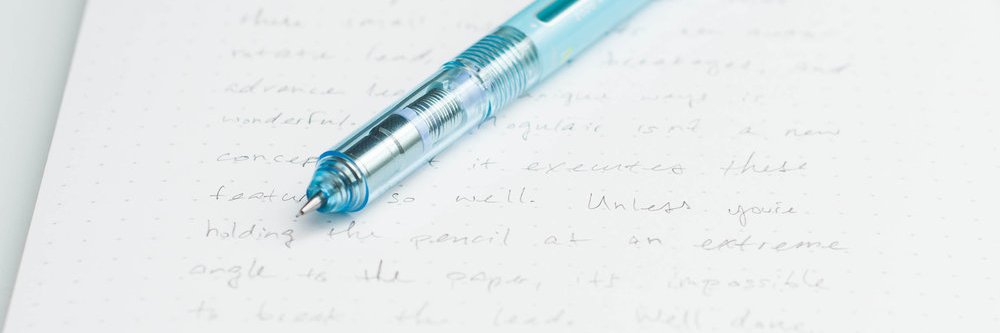 these small in
rotate lead, breakages, and
advance lea unique ways is
wonderful. Mogulair isn't a new
concep t it executes these
featu so well. Unless you're
holding the pencil at an extreme
angle to the paper, it's impossible
to break the lead. Well done,